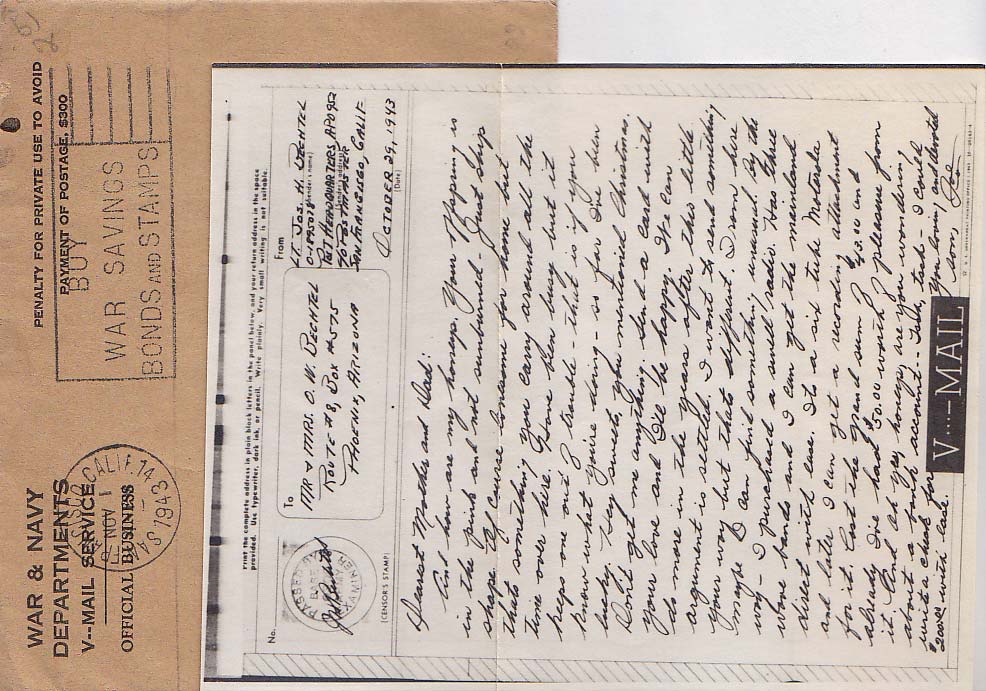 WAR & NAVY
DEPARTMENTS
V--MAIL SERVICE
OFFICIAL BUSINESS
PENALTY FOR PRIVATE USE TO AVOID
PAYMENT OF POSTAGE, $300
CALIF. 14
NOV 1
1943
BUY
WAR SAVINGS
BONDS AND STAMPS
Print the complete address in plain block letters in the panel below, and your return address in the space
provided. Use typewriter, dark ink, or pencil. Write plainly. Very small writing is not suitable.
No.
PASSED BY
BASE
EXAMINER
ARMY
(CENSOR'S STAMP)
To
MR & MRS. O. W. BECHTEL
ROUTE #8, BOX #575
PHOENIX, ARIZONA
From
LT. JOS. H. BECHTEL
(Sender's name)
HEADQUARTERS APO 952
(Sender's address)
℅ POSTMASTER
SAN FRANCISCO, CALIF
OCTOBER 29, 1943
(Date)
Dearest Mother and Dad:
And how are my honeys. Your offspring is
in the pink and not sunburned - Just ship
shape. Of course longing for home but
thats something you carry around all the
time over here. Have been busy but it
keeps one out of trouble - that is if you
know what you're doing - so far I've been
lucky. Say sweets, you mentioned Christmas.
Don't get me anything, send a card with
your love and I'll be happy. We can
do more in the years after this little
argument is settled. I want to send something
your way but thats different. From here
maybe I can find something unusual by the
way - I purchased a small radio. Has three
wave bands and I can get the mainland
direct with ease. It's a six tube Motorola
and later I can get a recording attachment
for it. Cost the grand sum of $43.00 and
already I've had $50.00 worth of pleasure from
it. And oh yes, honeys, are you wondering
about a bank account - Is the take - I could
write a check for
$200.00 with ease.
Your loving and devoted
son,
Joe
V---MAIL
U. S. GOVERNMENT PRINTING OFFICE : 1943